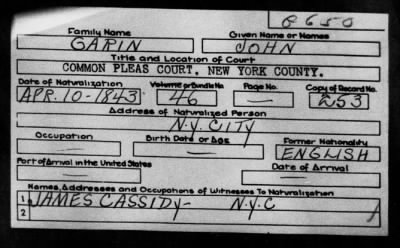 Family Name Given Name or Names
GARIN JOHN
Title and Location of Court
COMMON PLEAS COURT, NEW YORK COUNTY.
Date of Naturalization Volume or Bundle No. Page No. Copy of Record No.
APR. 10-1843 46 — 253
Address of Naturalized Person
N.Y. CITY
Occupation Birth Date or Age Former Nationality
— — ENGLISH
Port of Arrival in the United States Date of Arrival
— —
Names, Addresses and Occupations of Witnesses To Naturalization
1 JAMES CASSIDY- N.Y.C
2